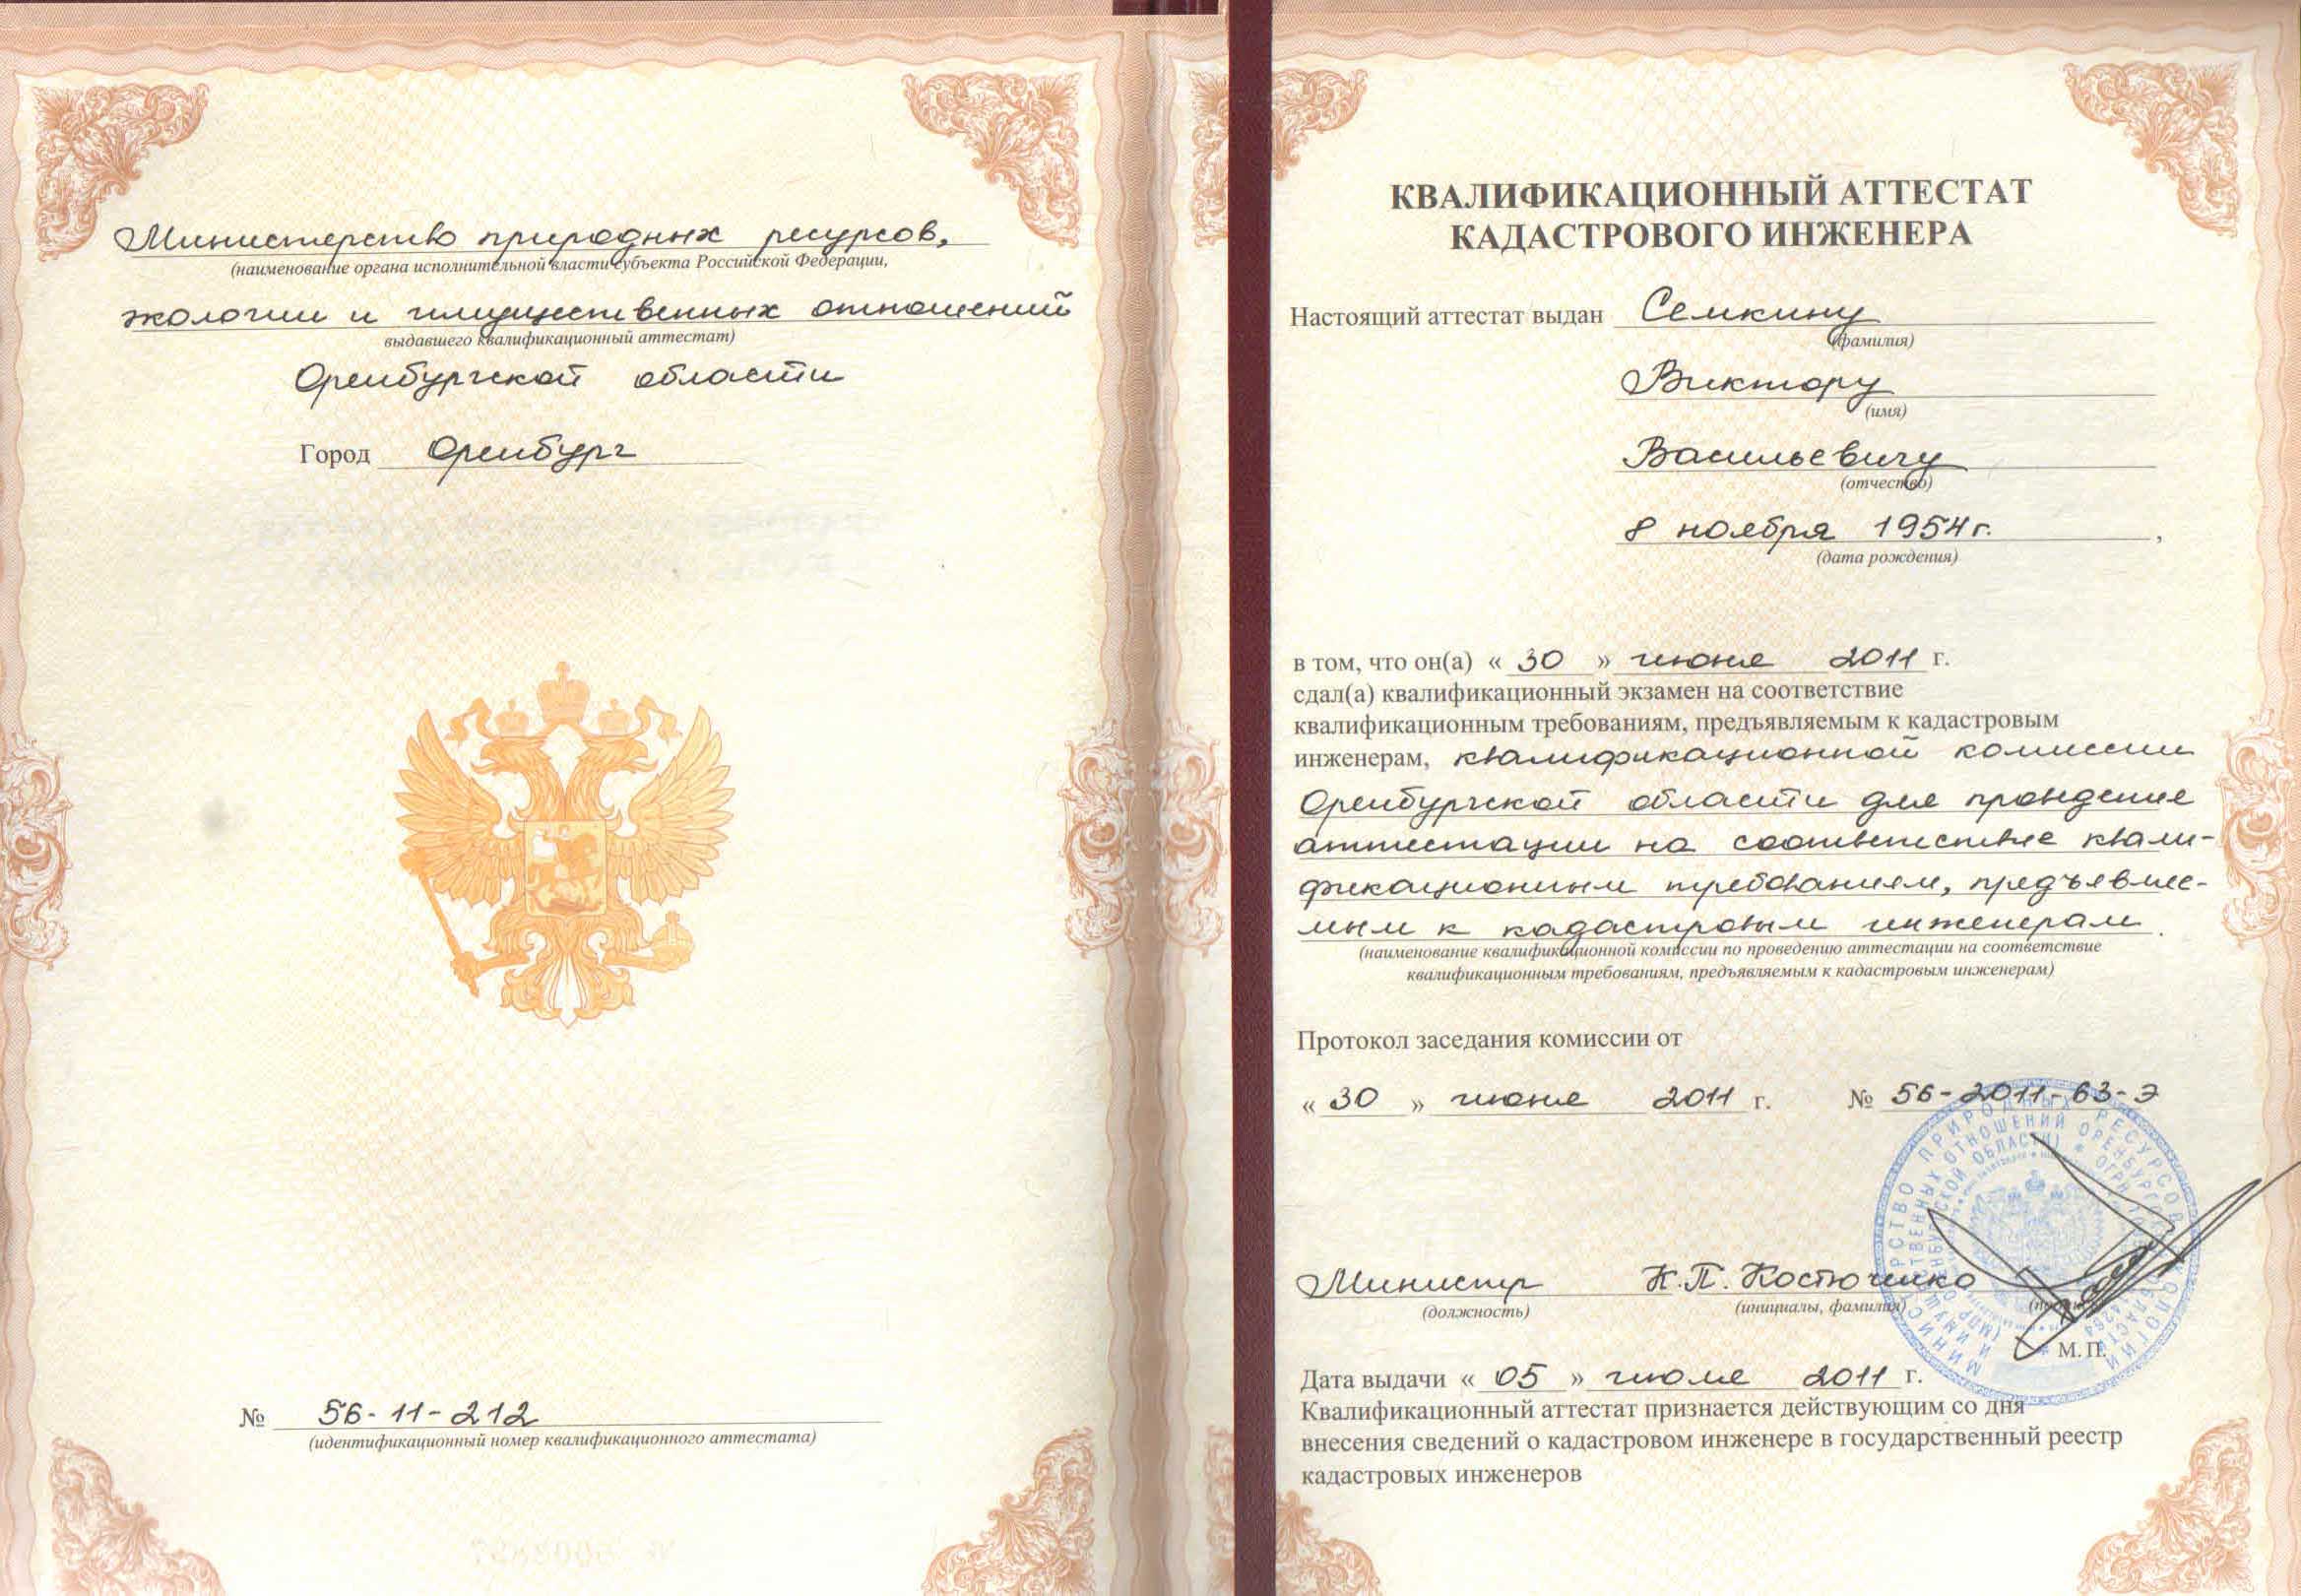 Министерство природных ресурсов,
(наименование органа исполнительной власти субъекта Российской Федерации,
экологии и имущественных отношений
выдавшего квалификационный аттестат)
Оренбургской области
Город Оренбург
№ 56-11-212
(идентификационный номер квалификационного аттестата)
КВАЛИФИКАЦИОННЫЙ АТТЕСТАТ
КАДАСТРОВОГО ИНЖЕНЕРА
Настоящий аттестат выдан Семкину
(фамилия)
Виктору
(имя)
Васильевичу
(отчество)
8 ноября 1954г.,
(дата рождения)
в том, что он(а) « 30 » июня 2011 г.
сдал(а) квалификационный экзамен на соответствие
квалификационным требованиям, предъявляемым к кадастровым
инженерам, квалификационной комиссии
Оренбургской области для проведения
аттестации на соответствие квали-
фикационным требованиям, предъявляе-
мым к кадастровым инженерам.
(наименование квалификационной комиссии по проведению аттестации на соответствие
квалификационным требованиям, предъявляемым к кадастровым инженерам)
Протокол заседания комиссии от
« 30 » июня 2011 г. № 56-2011-63-Э
Министр К.П. Костюченко
(должность) (инициалы, фамилия)
М.П.
Дата выдачи « 05 » июля 2011 г.
Квалификационный аттестат признается действующим со дня
внесения сведений о кадастровом инженере в государственный реестр
кадастровых инженеров